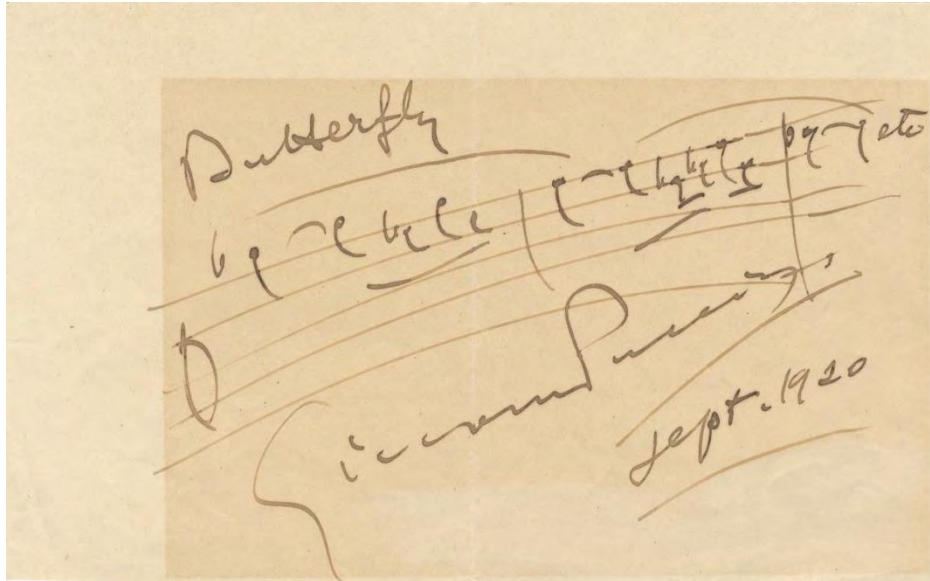 Butterfly
etc
Giacomo Puccini
Sept. 1920